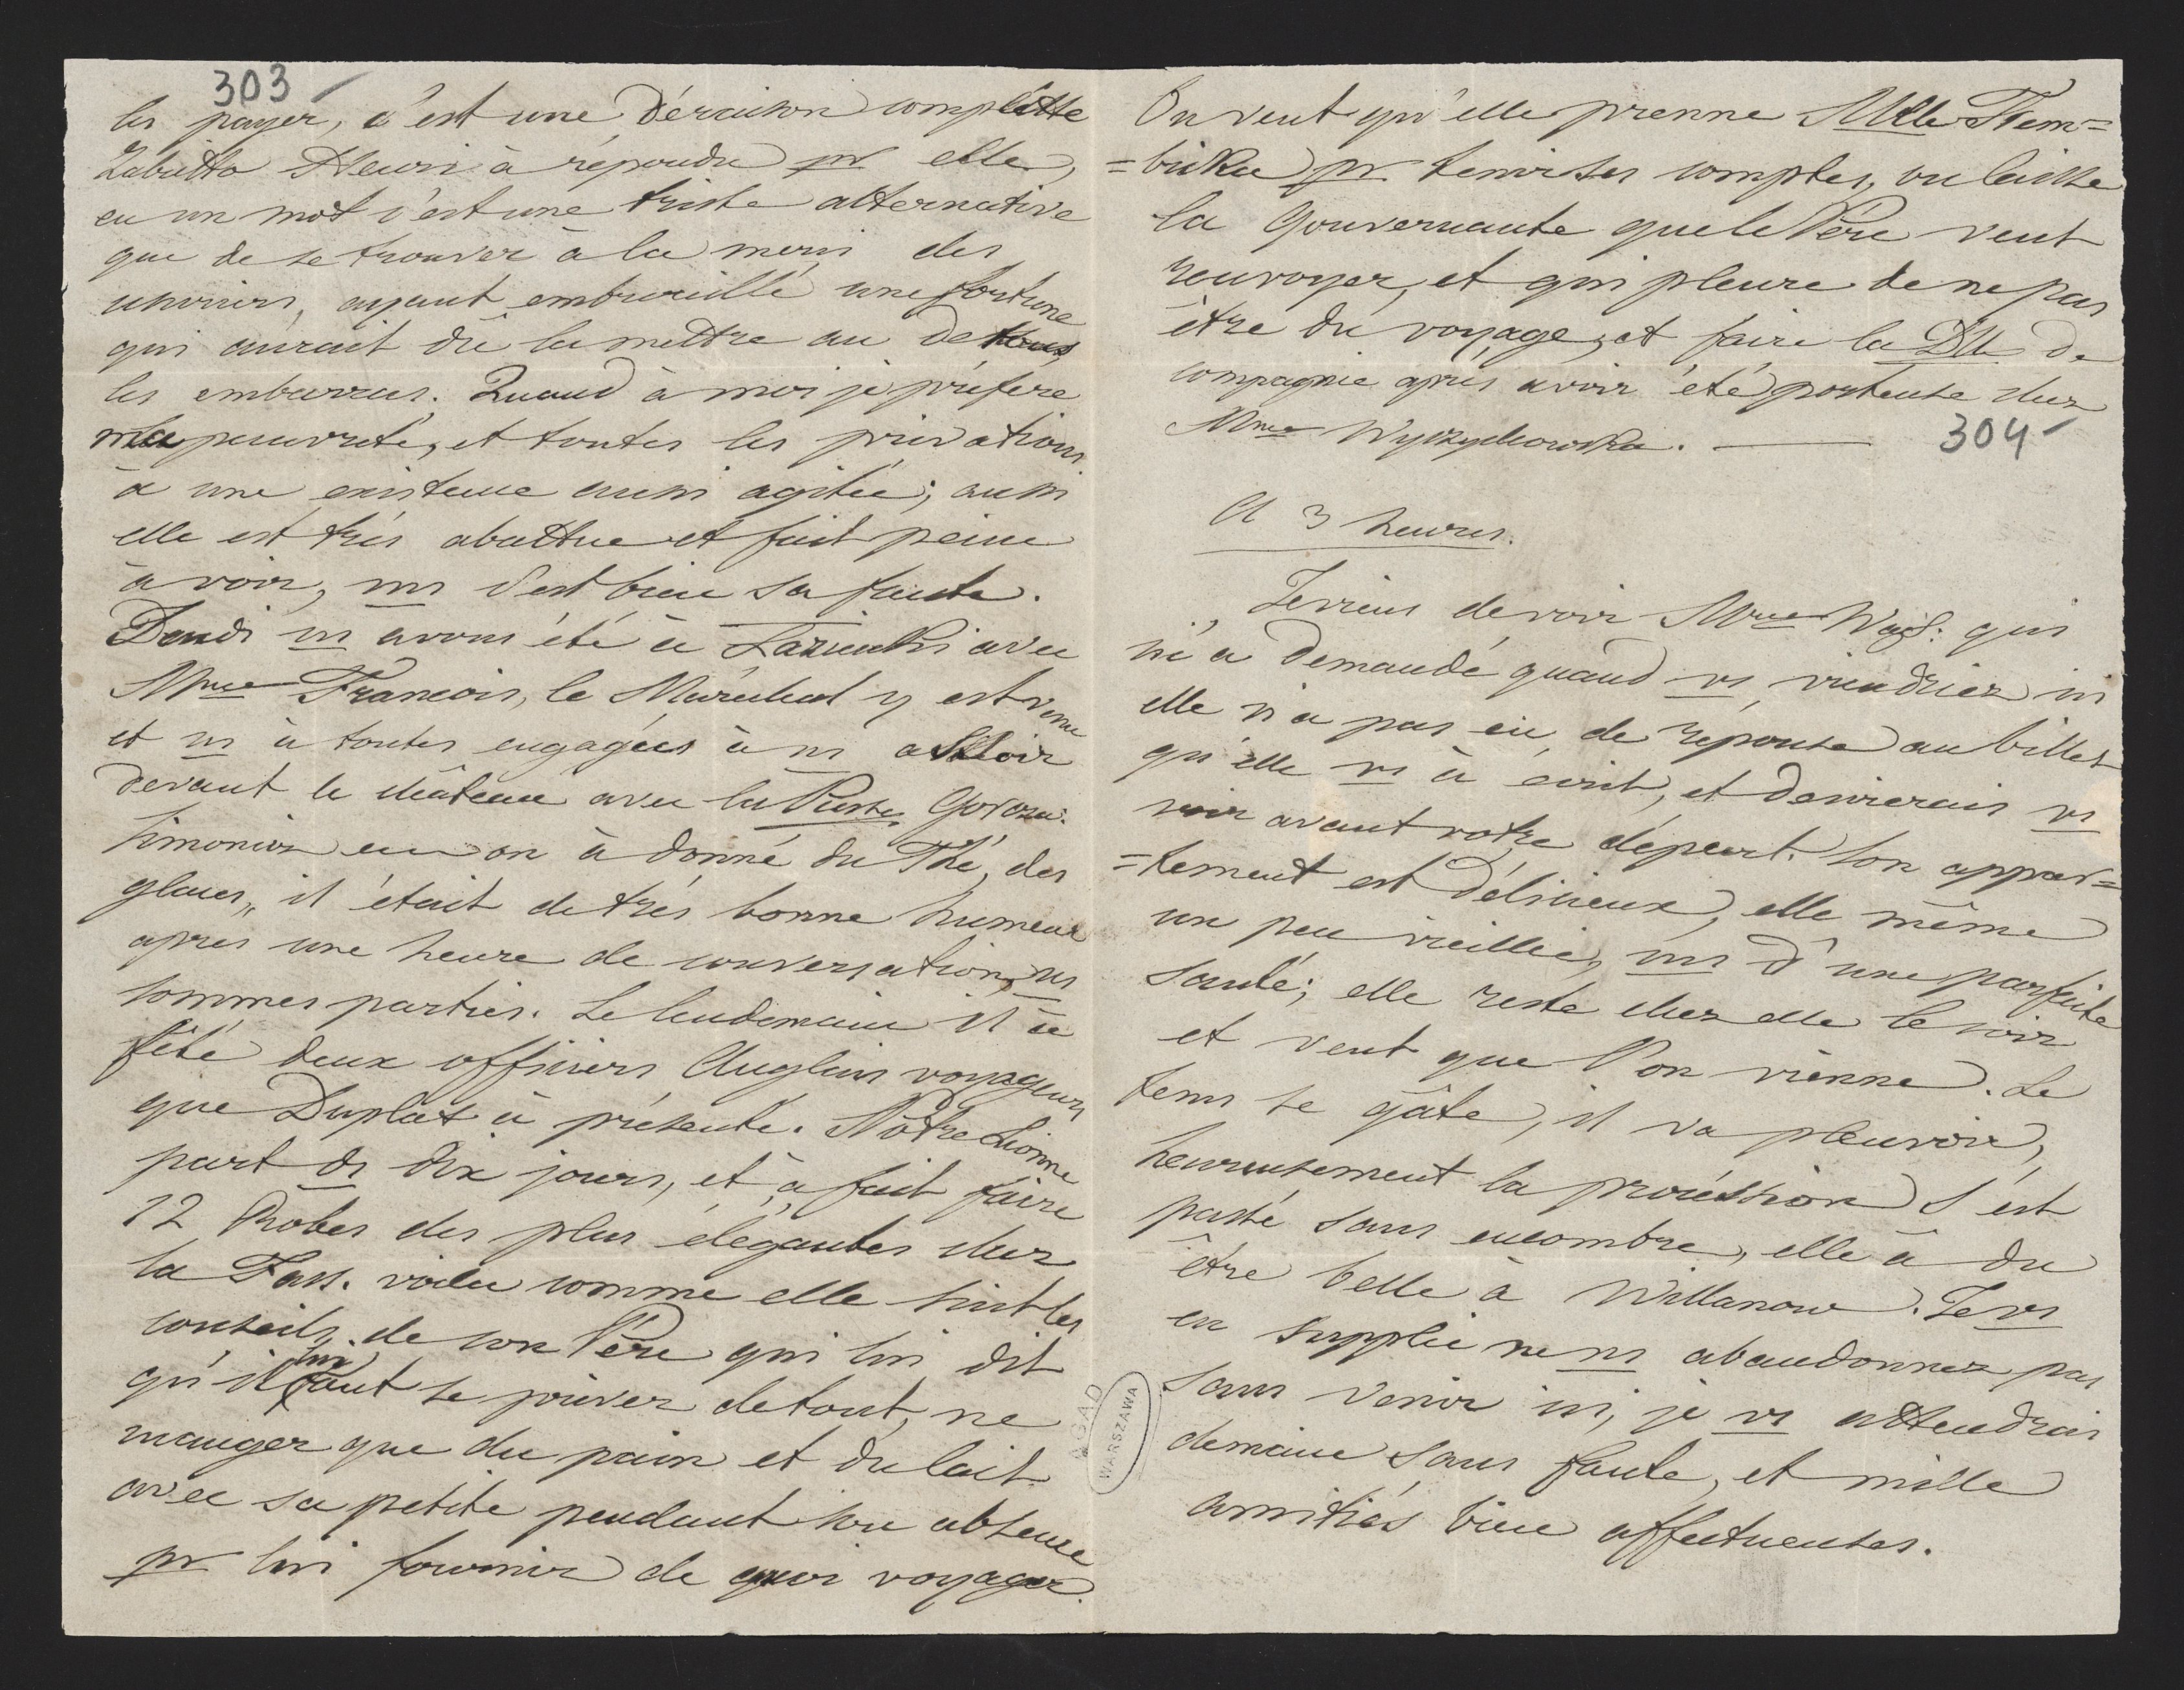 303
les payer, c'est une déraison complètte
Labietto Henri à répondu pr elle,
en un mot c'est une triste alternative
que de se trouver à la merci des
usuriers, ayant embrouillé une fortune
qui aurait dû la mettre au dessus
les embarras. Quand à moi je préfere
ma pauvreté, et toutes les privations
à une existence aussi agitée; aussi
elle est très abattue et fait peine
à voir, ms c'est bien sa faute.
Jeudi ns avons été à Lazienki avec
Mme François, le Maréchal y est venu
et ns à toutes engagées à ns asseoir
devant le château avec la Psse Gorcza=
on à donné du Thé, des
glaces, il était de très bonne humeur
apres une heure de conversation, ns
sommes parties. Le lendemain il a
fêté deux officiers Anglais voyageurs
que Duplat à présenté. Nôtre Lionne
part ds dix jours, et à fait faire
12 Robes des plus élégantes chez
la Fass. voila comme elle suit les
conseils, de son Père qui lui dit
qu'il lui faut se priver de tout, ne
manger que du pain et du lait
avec sa petite pendant son absence
pr lui fournir de quoi voyager.
On veut qu'elle prenne Mlle Stem=
=bicka pr tenir ses comptes, ou laisse
la Gouvernante que le Père veut
renvoyer, et qui pleure de ne pas
être du voyage, et faire la Dlle de
compagnie après avoir été porteuse chez
Mme Wyczychowska.
304
A 3 heures.
Je viens de voir Mme Wąs: qui
m'a demandé quand vs viendriez ici
elle n'a pas eû de réponse au billet
qu'elle vs à écrit, et désirerais vs
voir avant votre départ. Son appar=
=tement est délicieux, elle même
un peu vieillie, ms d'une parfaite
santé; elle reste chez elle le soir
et veut que l'on vienne. Le
tems se gâte, il va pleuvoir,
heureusement la procéssion s'est
passé sans encombre, elle à du
être belle à Willanow. Je vs
en supplie ne ns abandonnez pas
sans venir ici, je vs attendrais
demain sans faute, et mille
amitiés bien affectueuses.
AGAD
WARSZAWA